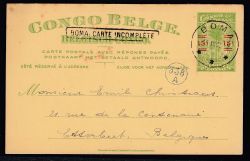 CONGO BELGE.
BELGISCH CONGO.
BOMA. CARTE INCOMPLÈTE
CARTE POSTALE AVEC RÉPONSE PAYÉE.
POSTKAART MET BETAALD ANTWOORD
CÔTÉ RÉSERVÉ À L'ADRESSE
ZIJDE VOOR HET ADRES
BOMA
15c 15c
A
Monsieur Emile
21 rue de la
Etterbeek
Belgique